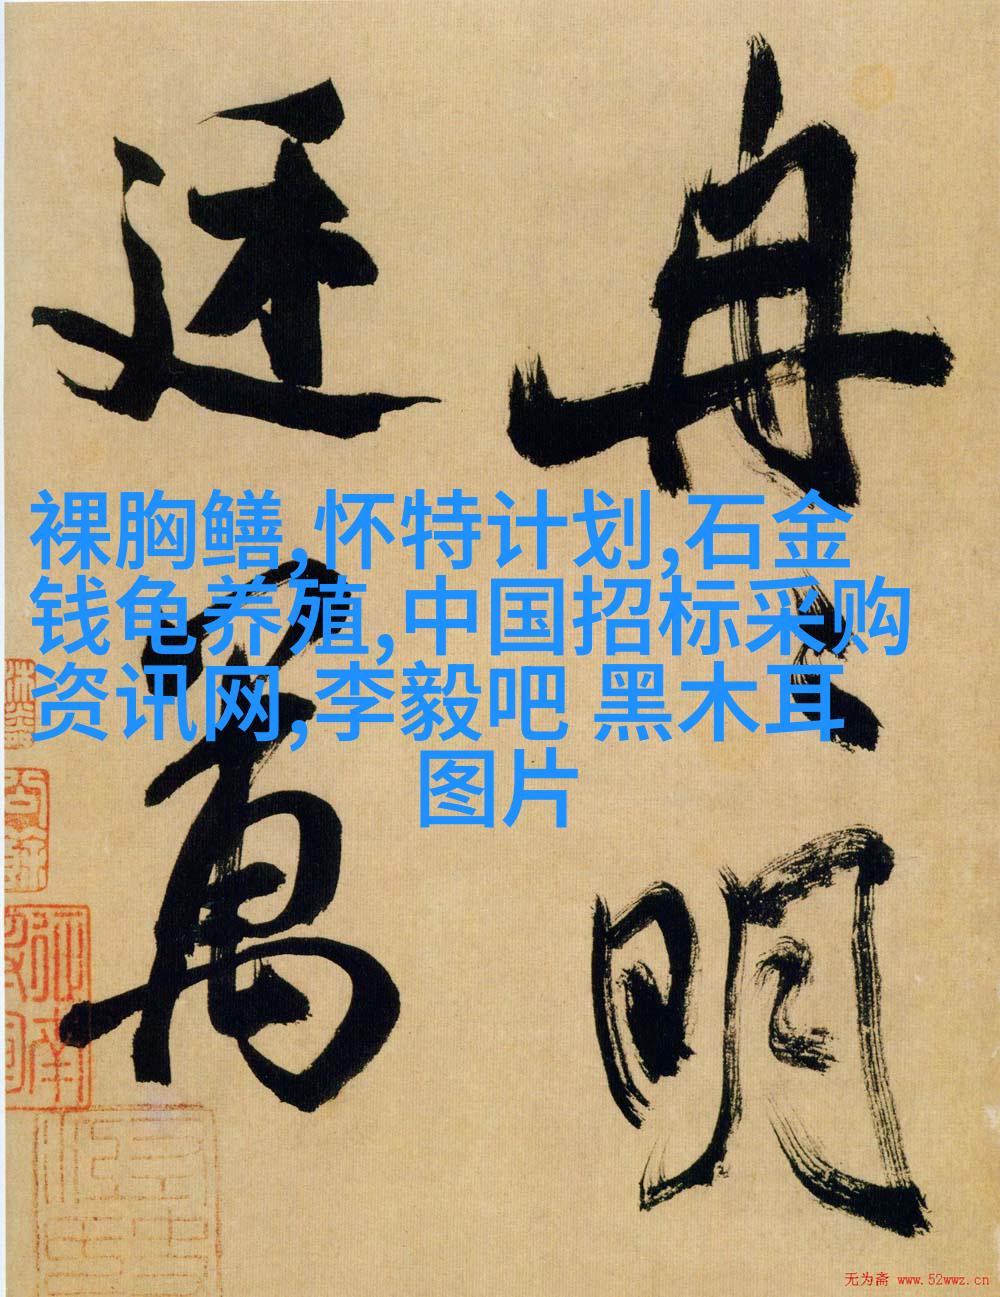 裸胸鳝,怀特计划,石金
钱龟养殖,中国招标采购
资讯网,李毅吧 黑木耳
图片
明
萬
无为斋 www.52wwz.cn